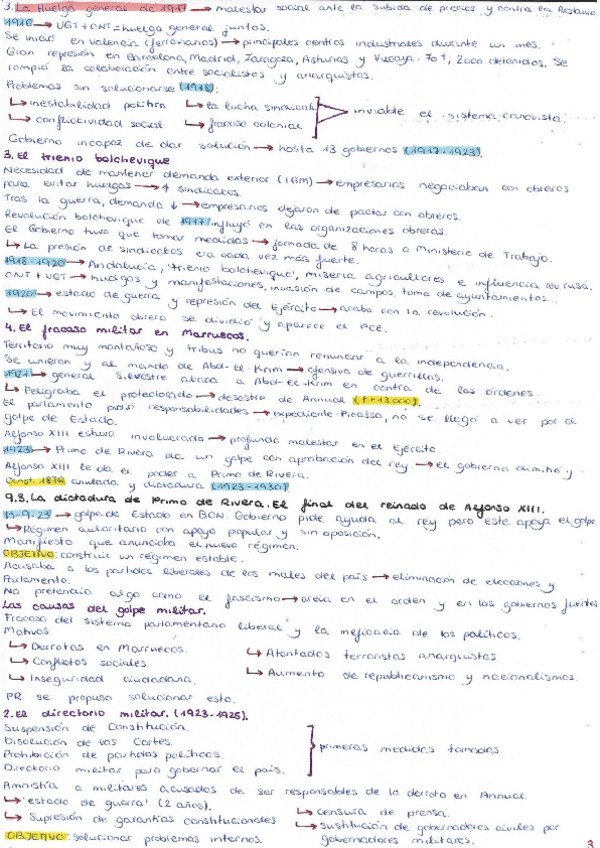 3. La Huelga general de 1917 → malestar social ante la subida de precios y contra la Restaur
1916 → UGT + CNT = huelga general juntos.
Se inició en Valencia (ferroviarios) → principales centros industriales durante un mes.
Gran represión en Barcelona, Madrid, Zaragoza, Asturias y Vizcaya. 70 †, 2000 detenidos. Se
rompió la colaboración entre socialistas y anarquistas.
Problemas sin solucionarse (1918):
↳ inestabilidad política ↳ la lucha sindical
↳ conflictividad social ↳ fracaso colonial
inviable el sistema canovista
Gobierno incapaz de dar solución → hasta 13 gobiernos (1917-1923).
3. El trienio bolchevique
Necesidad de mantener demanda exterior (IGM) → empresarios negociaban con obreros
para evitar huelgas → ↑ sindicatos.
Tras la guerra, demanda ↓ → empresarios dejaron de pactar con obreros.
Revolución bolchevique de 1917 influyó en las organizaciones obreras.
El Gobierno tuvo que tomar medidas → jornada de 8 horas o Ministerio de Trabajo.
↳ La presión de sindicatos era cada vez más fuerte.
1918-1920 → Andalucía, 'trienio bolchevique', miseria agricultores e influencia rev. rusa.
CNT + UGT → huelgas y manifestaciones, invasión de campos, toma de ayuntamientos...
1920 → estado de guerra y represión del Ejército → acaba con la revolución.
↳ El movimiento obrero se dividió y aparece el PCE.
4. El fracaso militar en Marruecos.
Territorio muy montañoso y tribus no querían renunciar a la independencia.
Se unieron y al mando de Abd-el-Krim → ofensiva de guerrillas.
1921 → general Silvestre ataca a Abd-el-Krim en contra de las órdenes.
↳ Peligraba el protectorado → desastre de Annual (†+13.000).
El parlamento pidió responsabilidades → expediente Picasso, no se llegó a ver por el
golpe de Estado.
Alfonso XIII estuvo involucrado → profundo malestar en el Ejército.
1923 → Primo de Rivera da un golpe con aprobación del rey → el gobierno dimitió y
Alfonso XIII le da el poder a Primo de Rivera.
Const. 1876 anulada y dictadura (1923-1930)
9.3. La dictadura de Primo de Rivera. El final del reinado de Alfonso XIII.
13-9-23 → golpe de Estado en BCN. Gobierno pide ayuda al rey pero este apoya el golpe.
↳ Régimen autoritario con apoyo popular y sin oposición.
Manifiesto que anunciaba el nuevo régimen.
OBJETIVO: construir un régimen estable.
Acusaba a los partidos liberales de los males del país → eliminación de elecciones y
Parlamento.
No pretendía algo como el fascismo → creía en el orden y en los gobiernos fuertes
Las causas del golpe militar.
Fracaso del sistema parlamentario liberal y la ineficacia de los políticos.
Motivos:
↳ Derrotas en Marruecos. ↳ Atentados terroristas anarquistas
↳ Conflictos sociales ↳ Aumento de republicanismo y nacionalismos.
↳ Inseguridad ciudadana.
PR se propuso solucionar esto.
2. El directorio militar. (1923-1925).
Suspensión de Constitución.
Disolución de las Cortes.
Prohibición de partidos políticos.
Directorio militar para gobernar el país.
primeras medidas tomadas.
Amnistía a militares acusados de ser responsables de la derrota en Annual.
↳ 'estado de guerra' (2 años). ↳ censura de prensa.
↳ Supresión de garantías constitucionales ↳ sustitución de gobernadores civiles por
OBJETIVO: solucionar problemas internos. gobernadores militares.
3